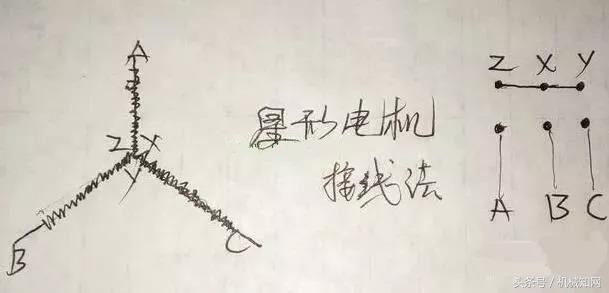 A
Z X
Y
B
C
星形电机
接线法
Z X Y
A B C
头条号/机械知网